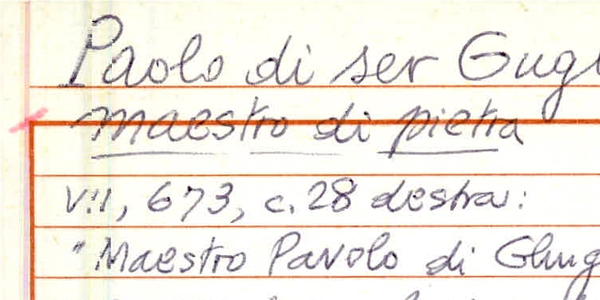 Paolo di ser Gugl
maestro di pietra
VII, 673, c. 28 destra:
"Maestro Pavolo di Ghug